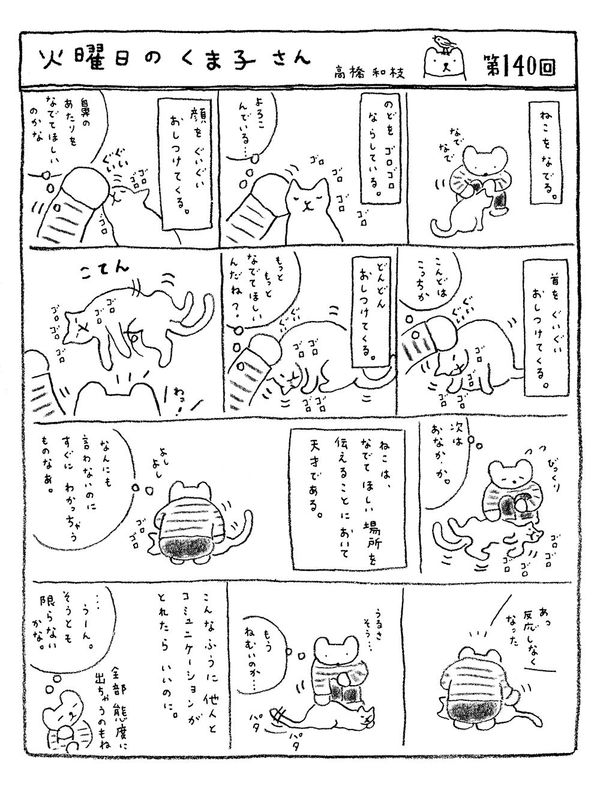 火曜日のくま子さん
高橋和枝
第140回
ねこをなでる。
なで
なで
のどを ゴロゴロ
ならしている。
よろこ
んでいる…
ゴロ
ゴロ
ゴロ
ゴロ
顔を ぐいぐい
おしつけてくる。
鼻の
あたりを
なでてほしい
のかな
ぐい
ぐい
ゴロ
ゴロ
ゴロ
首を ぐいぐい
おしつけてくる。
こんどは
こっちか
ぐい
ぐい
ゴロ
ゴロ
ゴロ
ゴロ
どんどん
おしつけてくる。
もっと
もっと
なでてほしい
んだね?
ぐい
ぐい
ゴロ
ゴロ
ゴロ
ゴロ
こてん
ゴロ
ゴロ
ゴロ
ゴロ
ゴロ
ゴロ
わっ!
次は
おなかか。
びっくり
ゴロ
ゴロ
ゴロ
ゴロ
ゴロ
ねこは、
なでてほしい 場所を
伝えることにおいて
天才である。
よし
よし
ゴロ
ゴロ
なんにも
言わないのに
すぐに わかっちゃう
ものなあ。
あっ
反応しなく
なった
うるさ
そう…
もう
ねむいのか…
パタ
パタ
こんなふうに 他人と
コミュニケーションが
とれたら いいのに。
…
うーん。
そうとも
限らない
かな。
全部 態度に
出ちゃうのもね